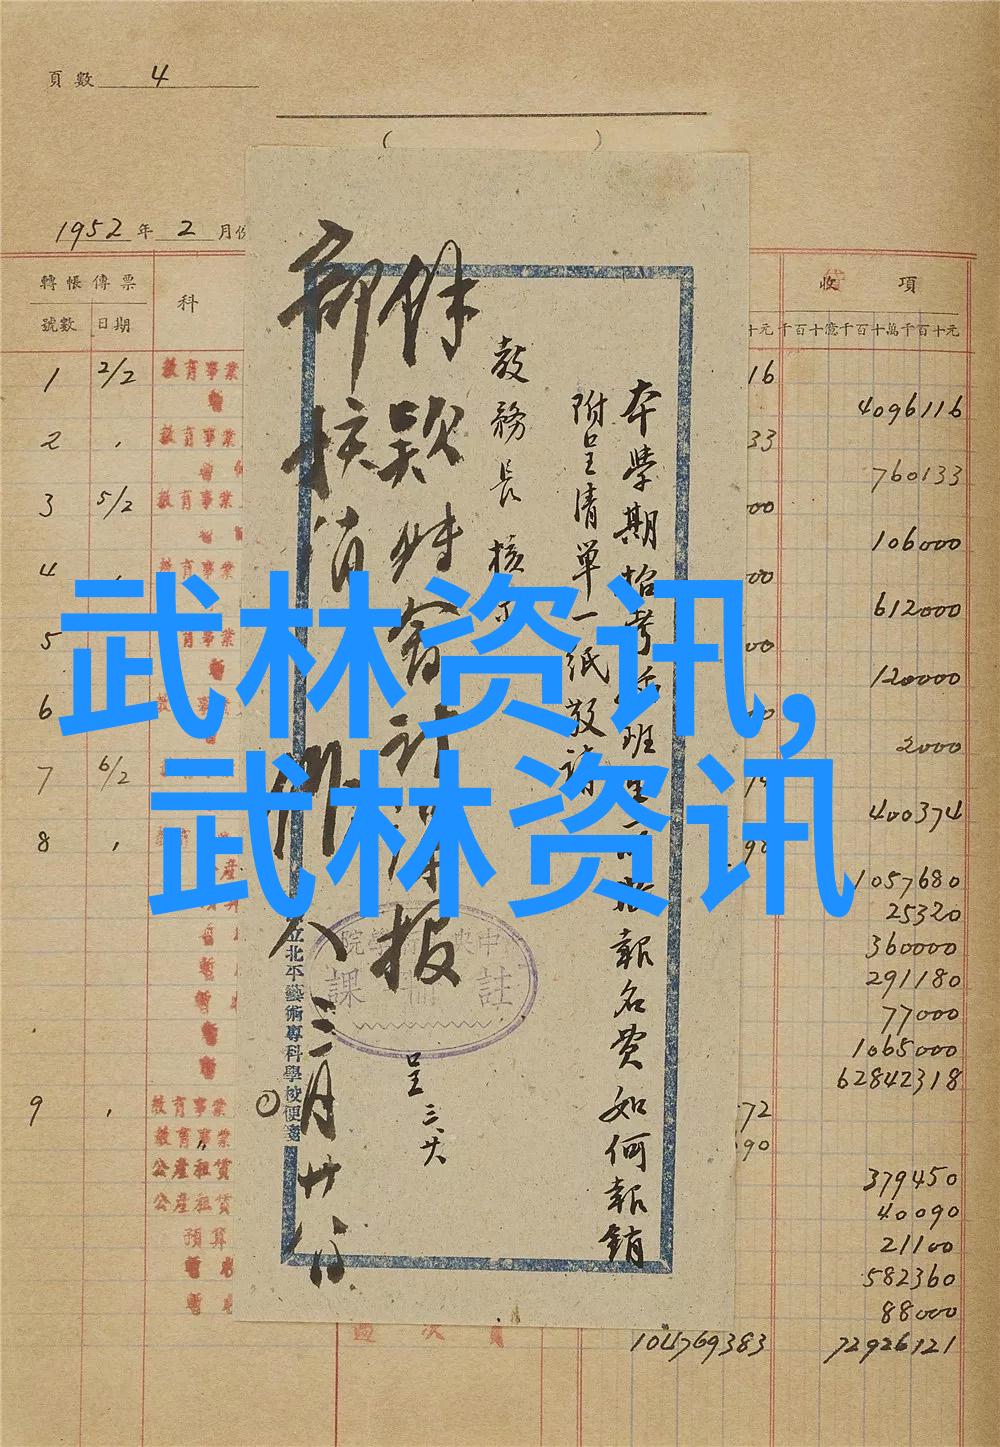 頁數 4
1952 年 2 月份
轉帳傳票
科
收 項
號數 日期
千百十億千百十萬千百十元
1 2/2 教育事業
16
4096116
2 教育事業
33
760133
3 5/2 教育事業
00
106000
4 教育事業
00
612000
5 育事業
00
120000
6
2000
7 6/2
400374
8
90
1057680
25320
360000
291180
77000
1065000
62842318
9 教育事業
72
教育事業
90
公產租賃
379450
公產租賃
40090
預算
21100
582360
88000
104769383 72926121
本學期招考
班生
報名費如何報銷
附呈清單一紙敬請
教務長核示
呈 三.廿
餘款
會計
報
部核消
三月廿
立北平藝術專科學校便箋
註冊課
武林资讯,
武林资讯